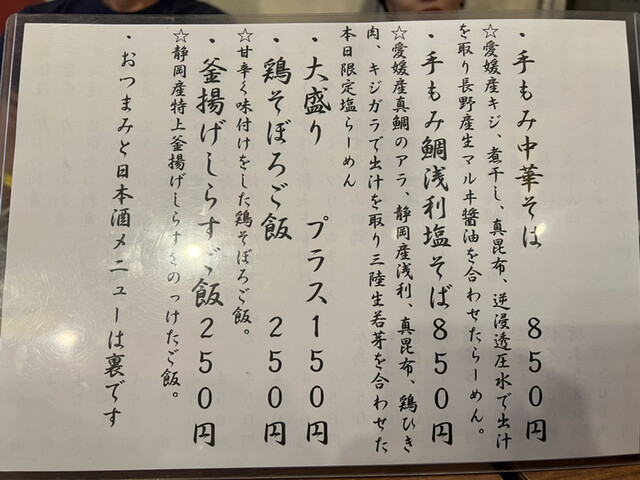 ・手もみ中華そば　８５０円
☆愛媛産キジ、煮干し、真昆布、逆浸透圧水で出汁
を取り長野産生マルヰ醬油を合わせたらーめん。
・手もみ鯛浅利塩そば８５０円
☆愛媛産真鯛のアラ、静岡産浅利、真昆布、鶏ひき
肉、キジガラで出汁を取り三陸生若芽を合わせた
本日限定塩らーめん
・大盛り　プラス１５０円
・鶏そぼろご飯　２５０円
☆甘辛く味付けをした鶏そぼろご飯。
・釜揚げしらすご飯２５０円
☆静岡産特上釜揚げしらすをのっけたご飯。
・おつまみと日本酒メニューは裏です